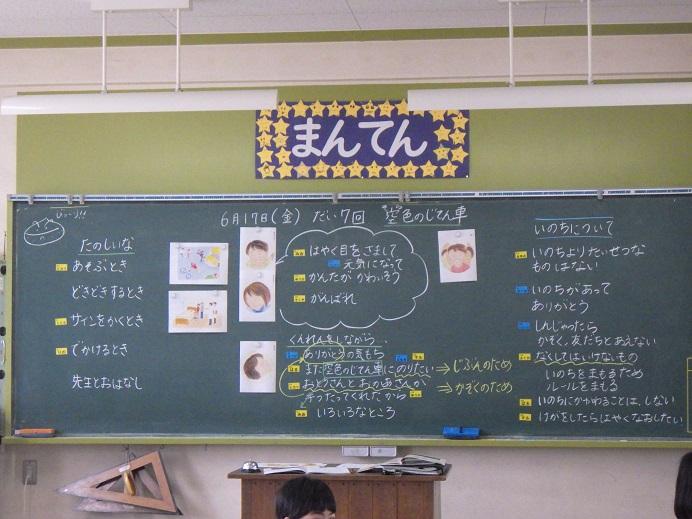 まんてん
6月17日(金) だい7回 空色のじてん車
たのしいな
あそぶとき
どきどきするとき
サインをかくとき
でかけるとき
先生とおはなし
はやく目をさまして
元気になって
かんたが かわいそう
がんばれ
くんれんをしながら
ありがとうの気もち
また空色のじてん車にのりたい ⇒ じぶんのため
おとうさんとおかあさんが ⇒ かぞくのため
手つだってくれたから
いろいろなところ
いのちについて
いのちよりたいせつな
ものはない
いのちがあって
ありがとう
しんじゃったら
かぞく、友だちとあえない
なくしてはいけないもの
いのちをまもるため
ルールをまもる
いのちにかかわることは、しない
けがをしたらはやくなおしたい